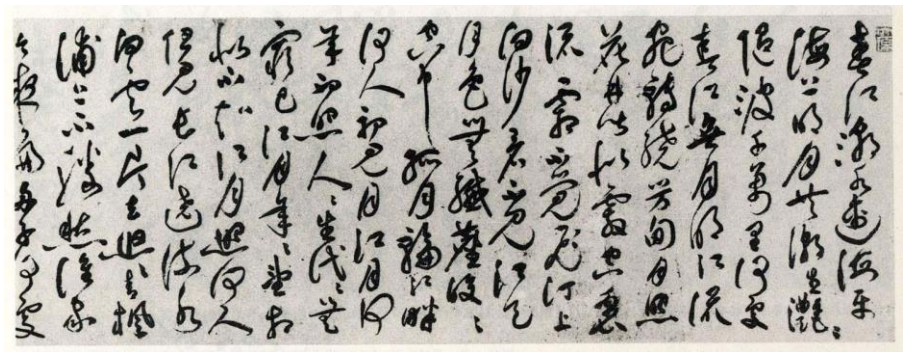 春江潮水連海平
海上明月共潮生灩〻
隨波千萬里何處
春江無月明江流
宛轉繞芳甸月照
花林皆似霰空裏
流霜不覺飛汀上
白沙看不見江天
月色無纖塵皎〻
空中孤月輪江畔
何人初見月江月何
年初照人〻生代〻無
窮已江月年〻望相
似不知江月照何人
但見長江送流水
白雲一片去悠〻青楓
浦上不勝愁誰家
今夜扁舟子何處